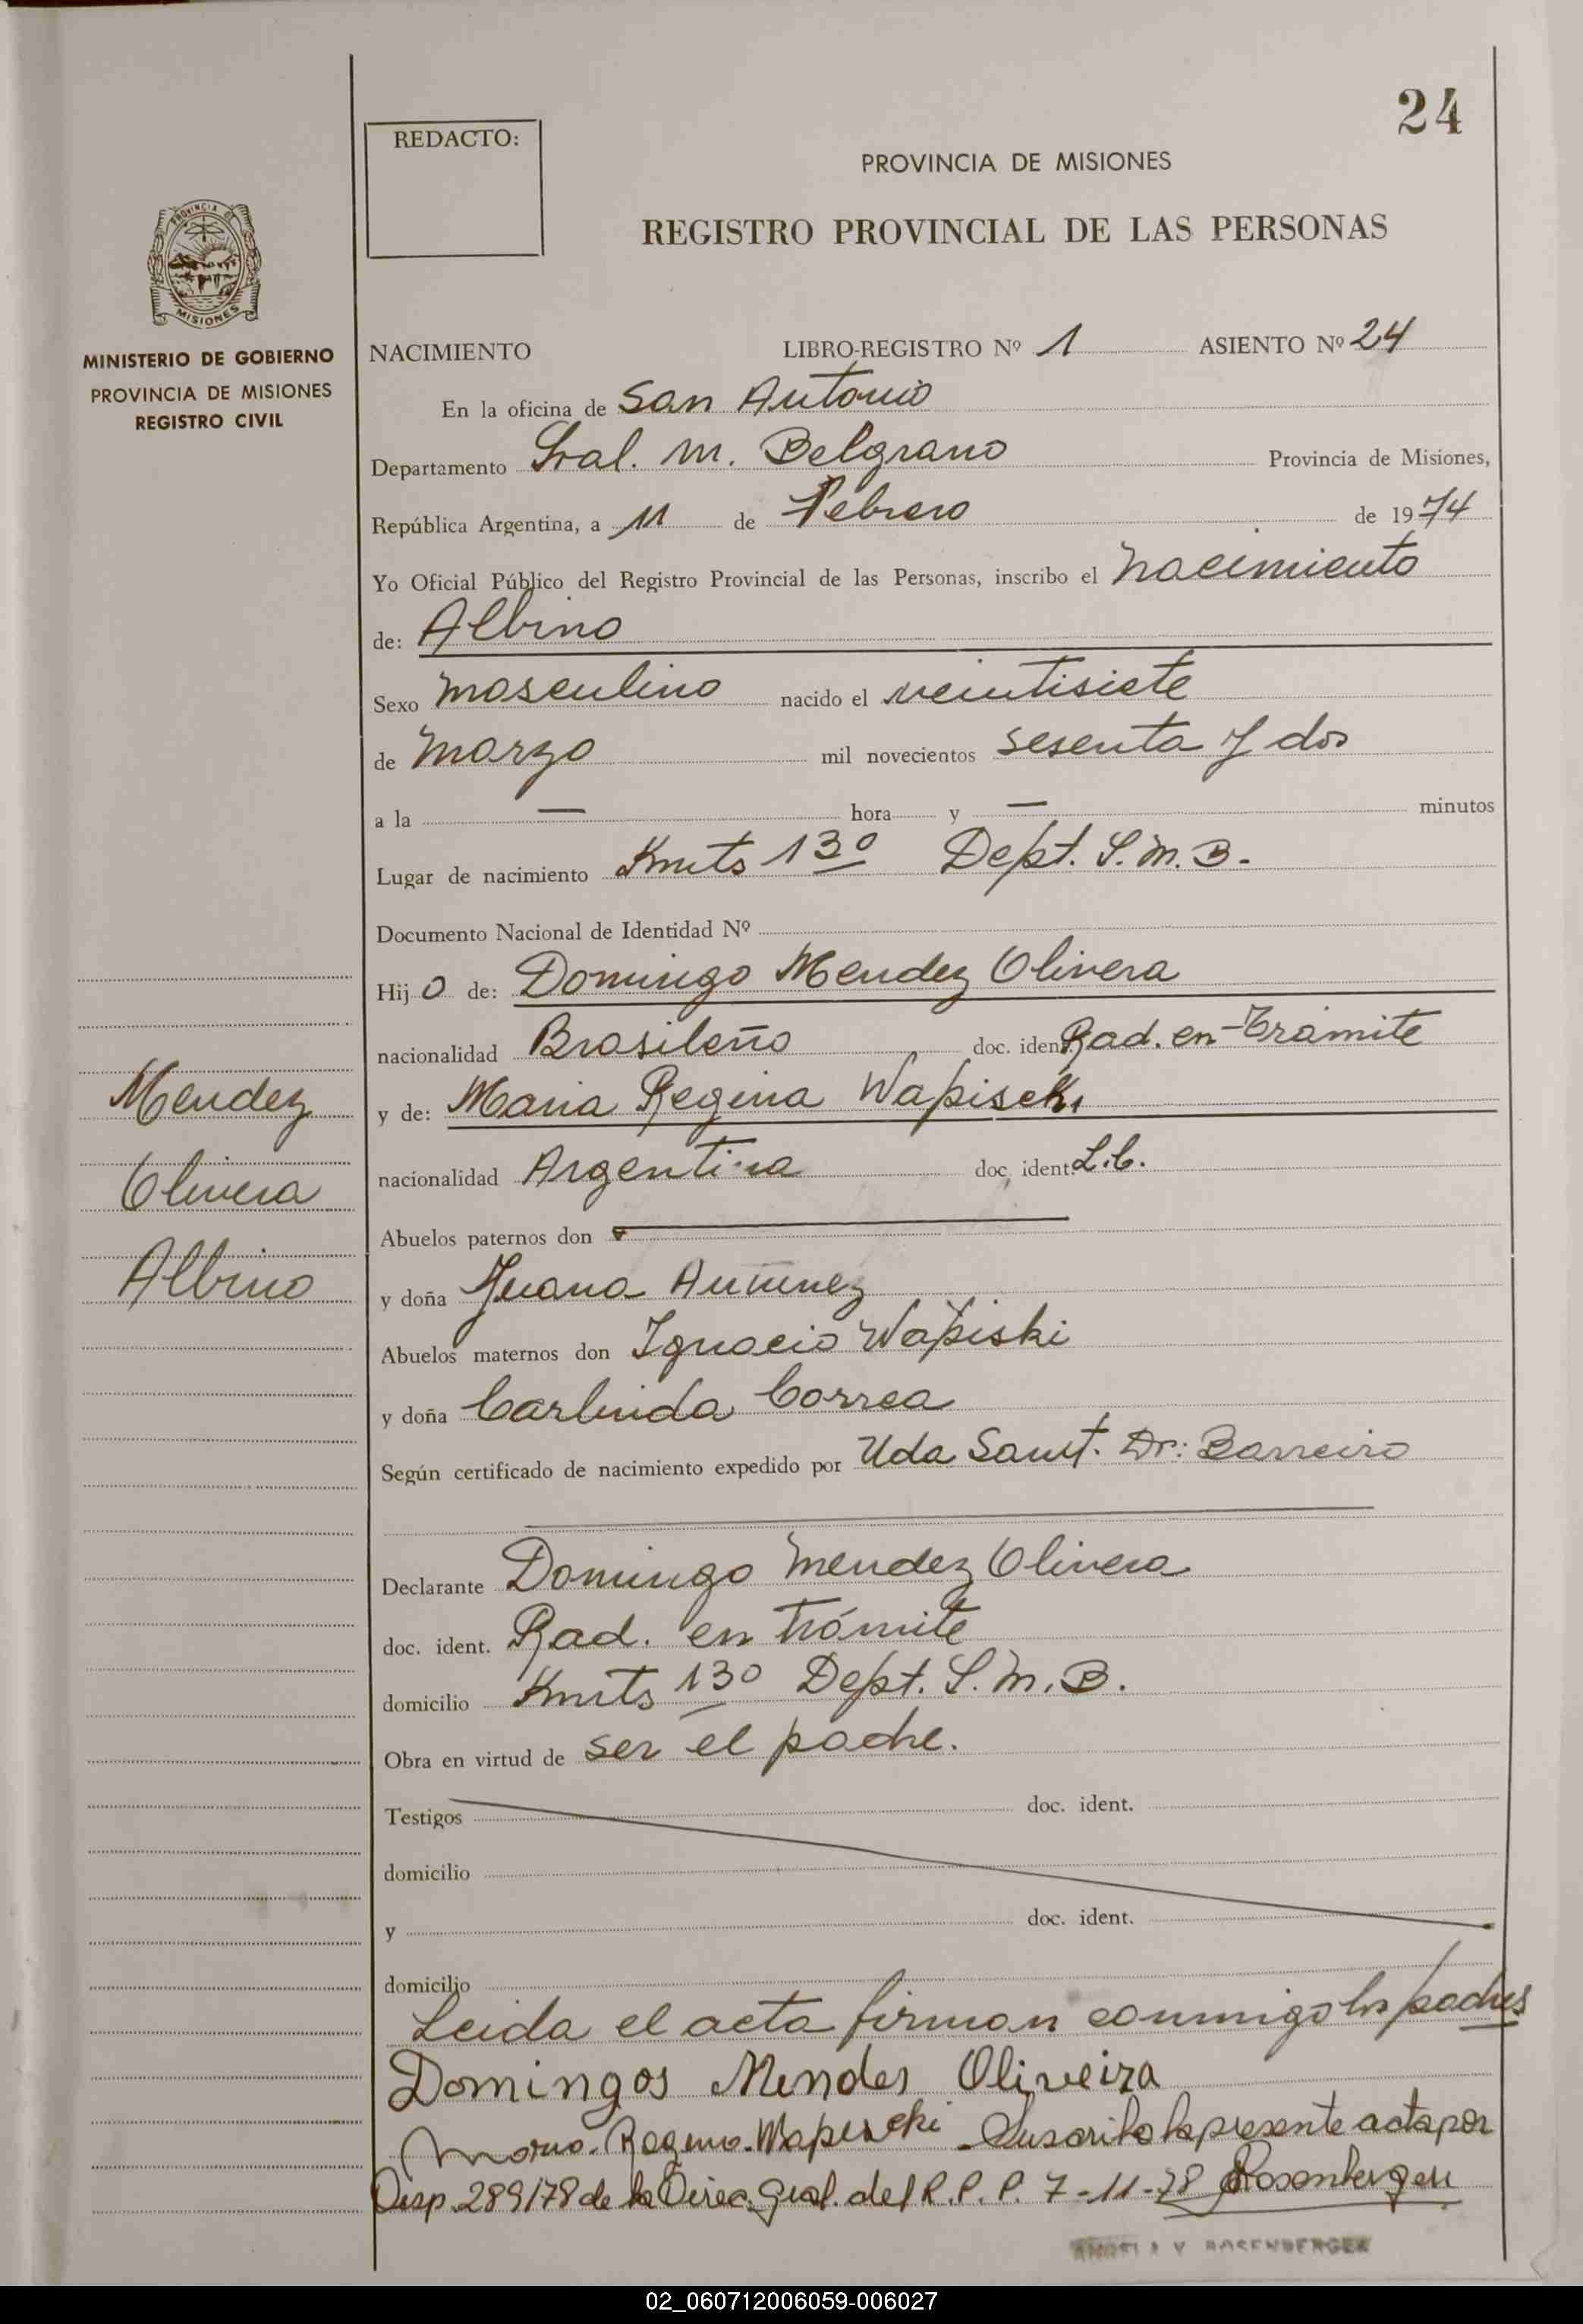 24
REDACTO:
PROVINCIA DE MISIONES
REGISTRO PROVINCIAL DE LAS PERSONAS
PROVINCIA DE
MISIONES
MINISTERIO DE GOBIERNO
PROVINCIA DE MISIONES
REGISTRO CIVIL
NACIMIENTO LIBRO-REGISTRO Nº 1 ASIENTO Nº 24
En la oficina de San Antonio
Departamento Gral. M. Belgrano Provincia de Misiones,
República Argentina, a 11 de Febrero de 1974
Yo Oficial Público del Registro Provincial de las Personas, inscribo el nacimiento
de: Albino
Sexo masculino nacido el veintisiete
de marzo mil novecientos sesenta y dos
a la — hora y — minutos
Lugar de nacimiento 13º Dept. G. M. B.
Documento Nacional de Identidad Nº
Hijo de: Domingo Mendez Olivera
nacionalidad Brasileño doc. ident. Rad. en Tramite
y de: Maria Regina Wapiscki
nacionalidad Argentina doc. ident. L.C.
Abuelos paternos don
y doña Juana
Abuelos maternos don Ignacio Wapiski
y doña Carlinda Correa
Según certificado de nacimiento expedido por Uda Sanit. Dr: Barreiro
Declarante Domingo Mendez Olivera
doc. ident. Rad. en Trámite
domicilio 130 Dept. G. M. B.
Obra en virtud de ser el padre.
Testigos doc. ident.
domicilio
y doc. ident.
domicilio
Leida el acta firman conmigo los padres
Domingos Mendes Oliveira
Suscribo la presente acta por
Disp. 289/78 de la Direc. Gral. del R. P. P. 7-11-78 Rosenberger
ROSENBERGER
Mendez
Olivera
Albino
02_060712006059-006027